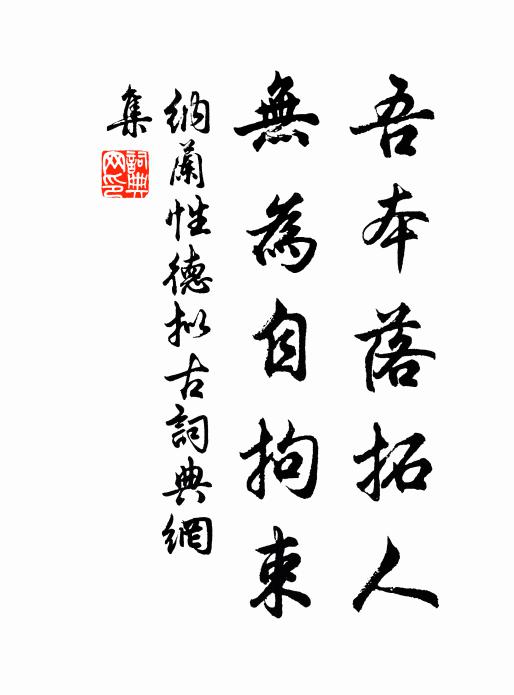 吾本落拓人
無為自拘束
納蘭性德擬古詞典網
集
詞典網印